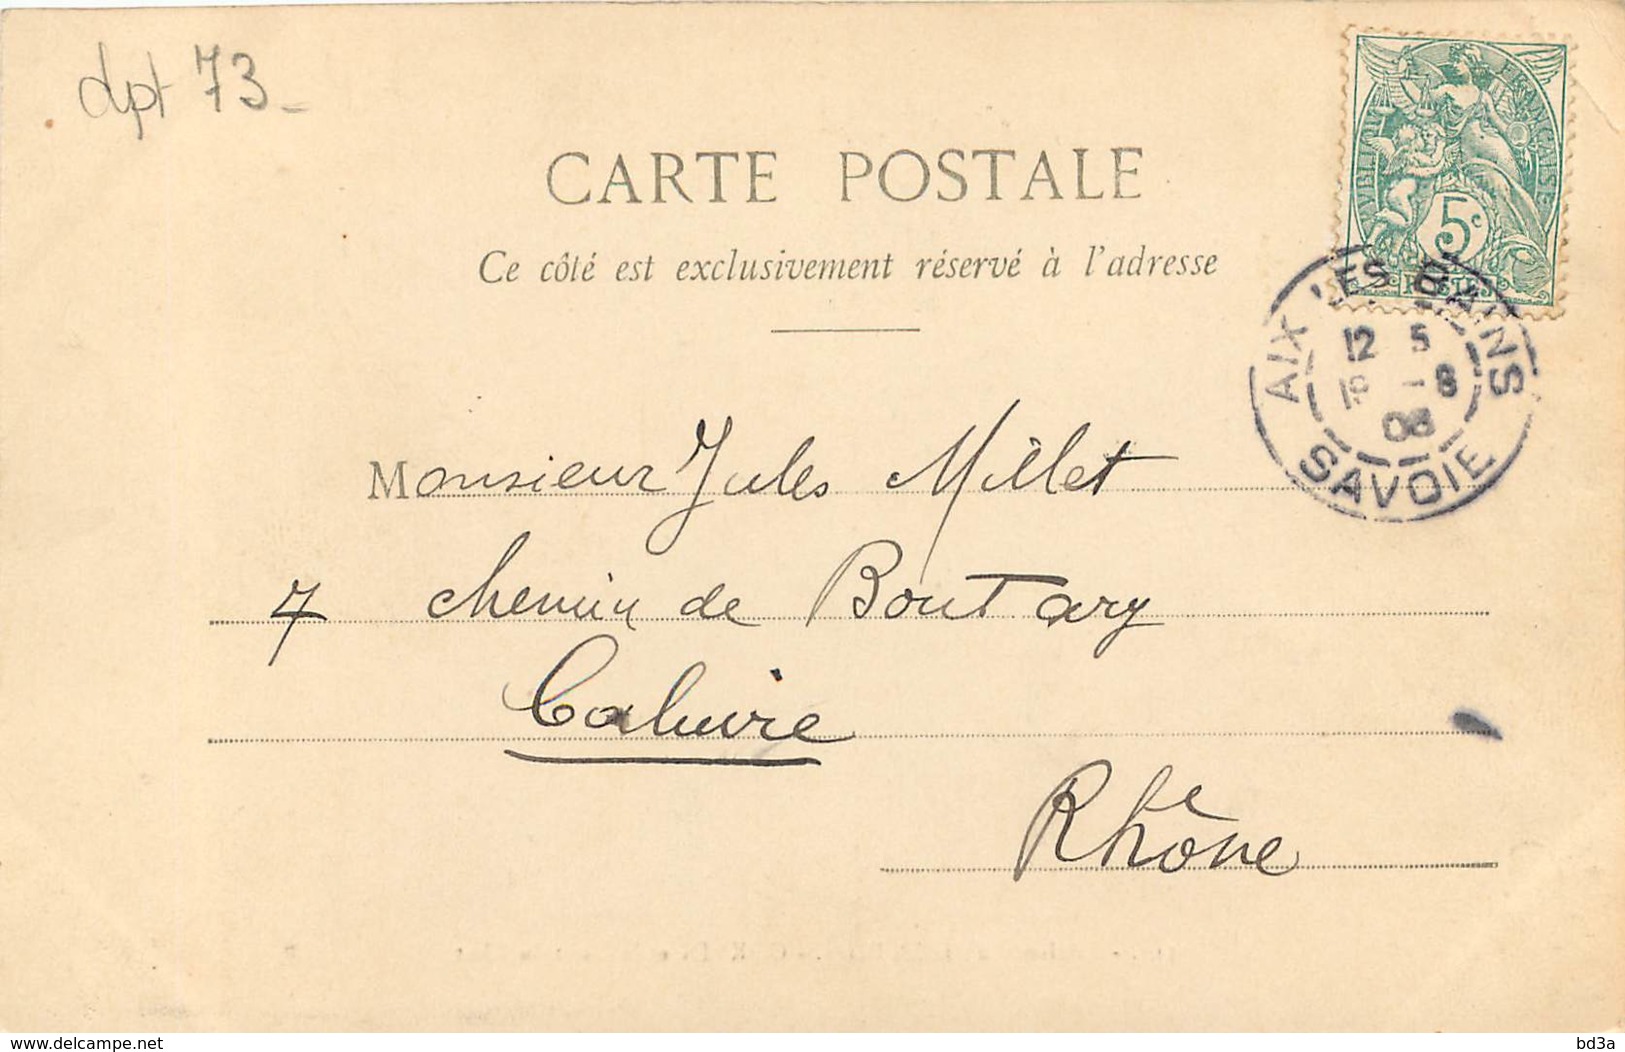 dpt 73
CARTE POSTALE
Ce côté est exclusivement réservé à l'adresse
FRANÇAISE
5c
POSTES
AIX LES BAINS
12 5
-8
08
SAVOIE
Monsieur Jules Millet
7 chemin de Boutary
Caluire
Rhône
www.delcampe.net
bd3a